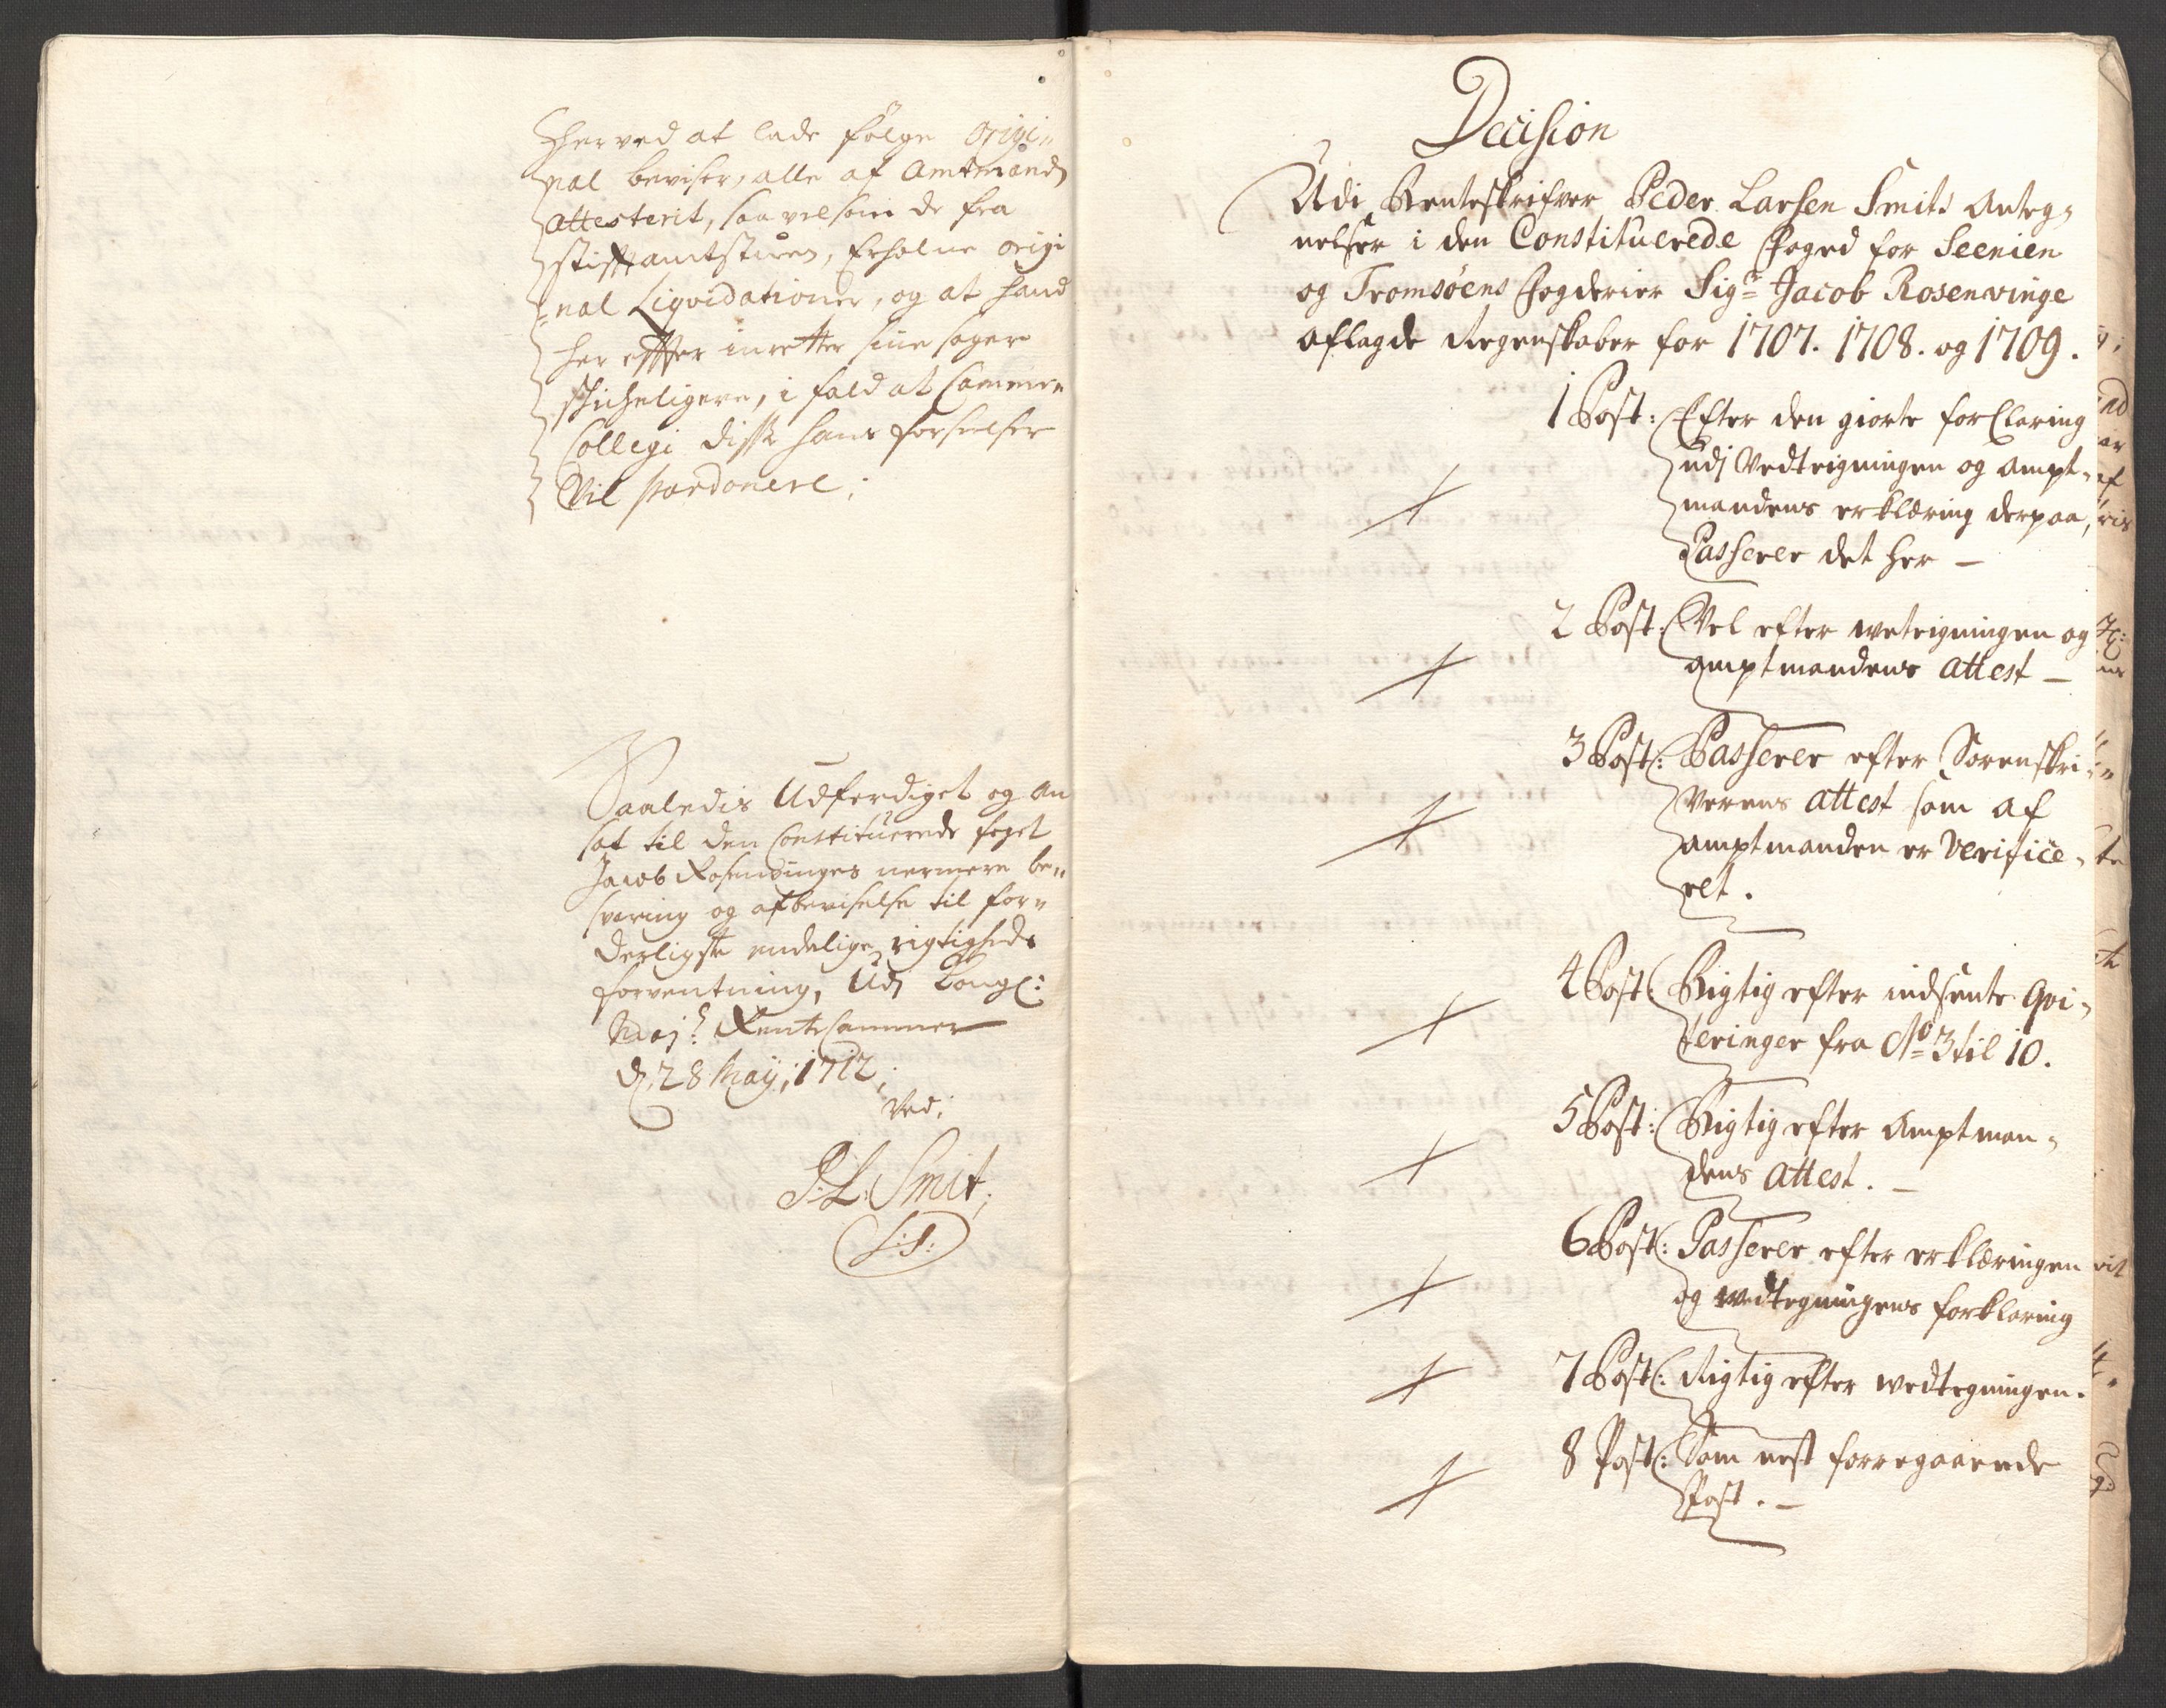 Herved at lade følge Origi-
nal beviser, alle af Amtmand
attesterit, saavelsom de fra
stiftamtstuen, Erholne origi
nal Liqvidationer, og at hand
her effter inretter sine sager
skicheligere, i fald at Cammer
Collegi disse hans forseelser
Vil pardonere;
Saaledis Udferdiget og an
sat til den Constituerede foget
Jacob Rosenvinges nermere be-
svaring og afbeviselse til for-
derligste endelige rigtigheds
forventning, Udj Kongl:
Maj: Rente Cammer
d. 28 Maij; 1712;
Ved;
P: L: Smit;
L: S:
Decision
Udi Renteskrifver Peder Larsen Smits Anteg-
nelser i den Constituerede Foged for Seenien
og Tromsøens Fogderier Sigr Jacob Rosenvinge
aflagde Regenskaber for 1707. 1708. og 1709.
1 Post: Efter den giorte forClaring
udj Vedteigningen og ampt-
mandens erklæring derpaa,
Passerer det her —
2 Post: Vel efter weteigningen og
amptmandens attest —
3 Post: Passerer efter Sorenskri-
Verens attest som af
amptmanden er Verifice-
ret.
4 Post: Rigtig efter indsente Qvi-
teringer fra No 3 til 10.
5 Post: Rigtig efter Amptman-
dens attest. —
6 Post: Passerer efter erklæringen
og wedtegningens forklaring
7 Post: Rigtig efter wedtegningen.
8 Post: Som nest forregaaende
Post. —